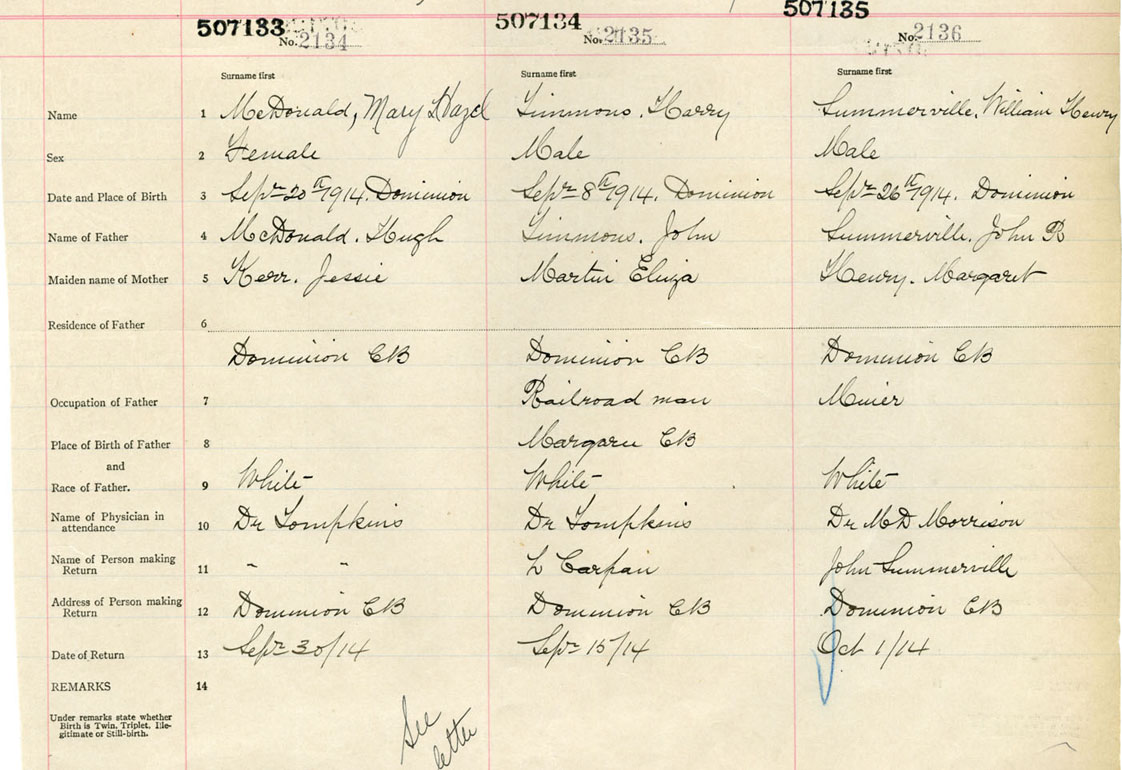 507133 507134 507135
No. 2134 No. 2135 No. 2136
Surname first Surname first Surname first
Name 1 McDonald, Mary Hazel Simmons, Harry Summerville, William Henry
Sex 2 Female Male Male
Date and Place of Birth 3 Sept 20th 1914. Dominion Sept 8th 1914. Dominion Sept 26th 1914. Dominion
Name of Father 4 McDonald. Hugh Simmons. John Summerville. John R
Maiden name of Mother 5 Kerr. Jessie Martin Eliza Henry. Margaret
Residence of Father 6
Dominion CB Dominion CB Dominion CB
Occupation of Father 7 Railroad man Miner
Place of Birth of Father 8 Margaree CB
and
Race of Father. 9 White White White
Name of Physician in
attendance 10 Dr Tompkins Dr Tompkins Dr MD Morrison
Name of Person making
Return 11 " " L John Summerville
Address of Person making
Return 12 Dominion CB Dominion CB Dominion CB
Date of Return 13 Sept 30/14 Sept 15/14 Oct 1/14
REMARKS 14
Under remarks state whether
Birth is Twin, Triplet, Ille-
gitimate or Still-birth.
See
letter